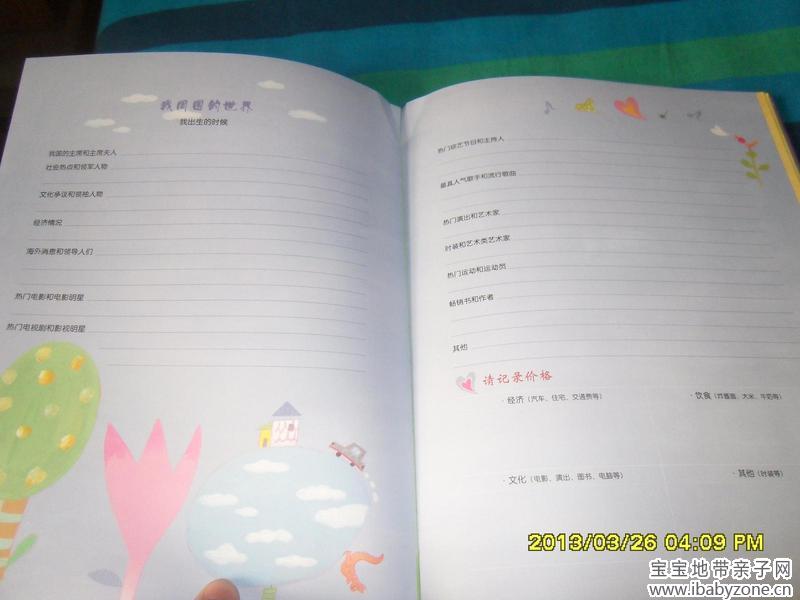 我周围的世界
我出生的时候
我国的主席和主席夫人
社会热点和领军人物
文化争议和领袖人物
经济情况
海外消息和领导人们
热门电影和电影明星
热门电视剧和影视明星
热门综艺节目和主持人
最具人气歌手和流行歌曲
热门演出和艺术家
时装和艺术类艺术家
热门运动和运动员
畅销书和作者
其他
请记录价格
·经济（汽车、住宅、交通费等）
·饮食（炸酱面、大米、牛奶等）
·文化（电影、演出、图书、电脑等）
·其他（时装等）
2013/03/26 04:09 PM
宝宝地带亲子网
www.ibabyzone.cn